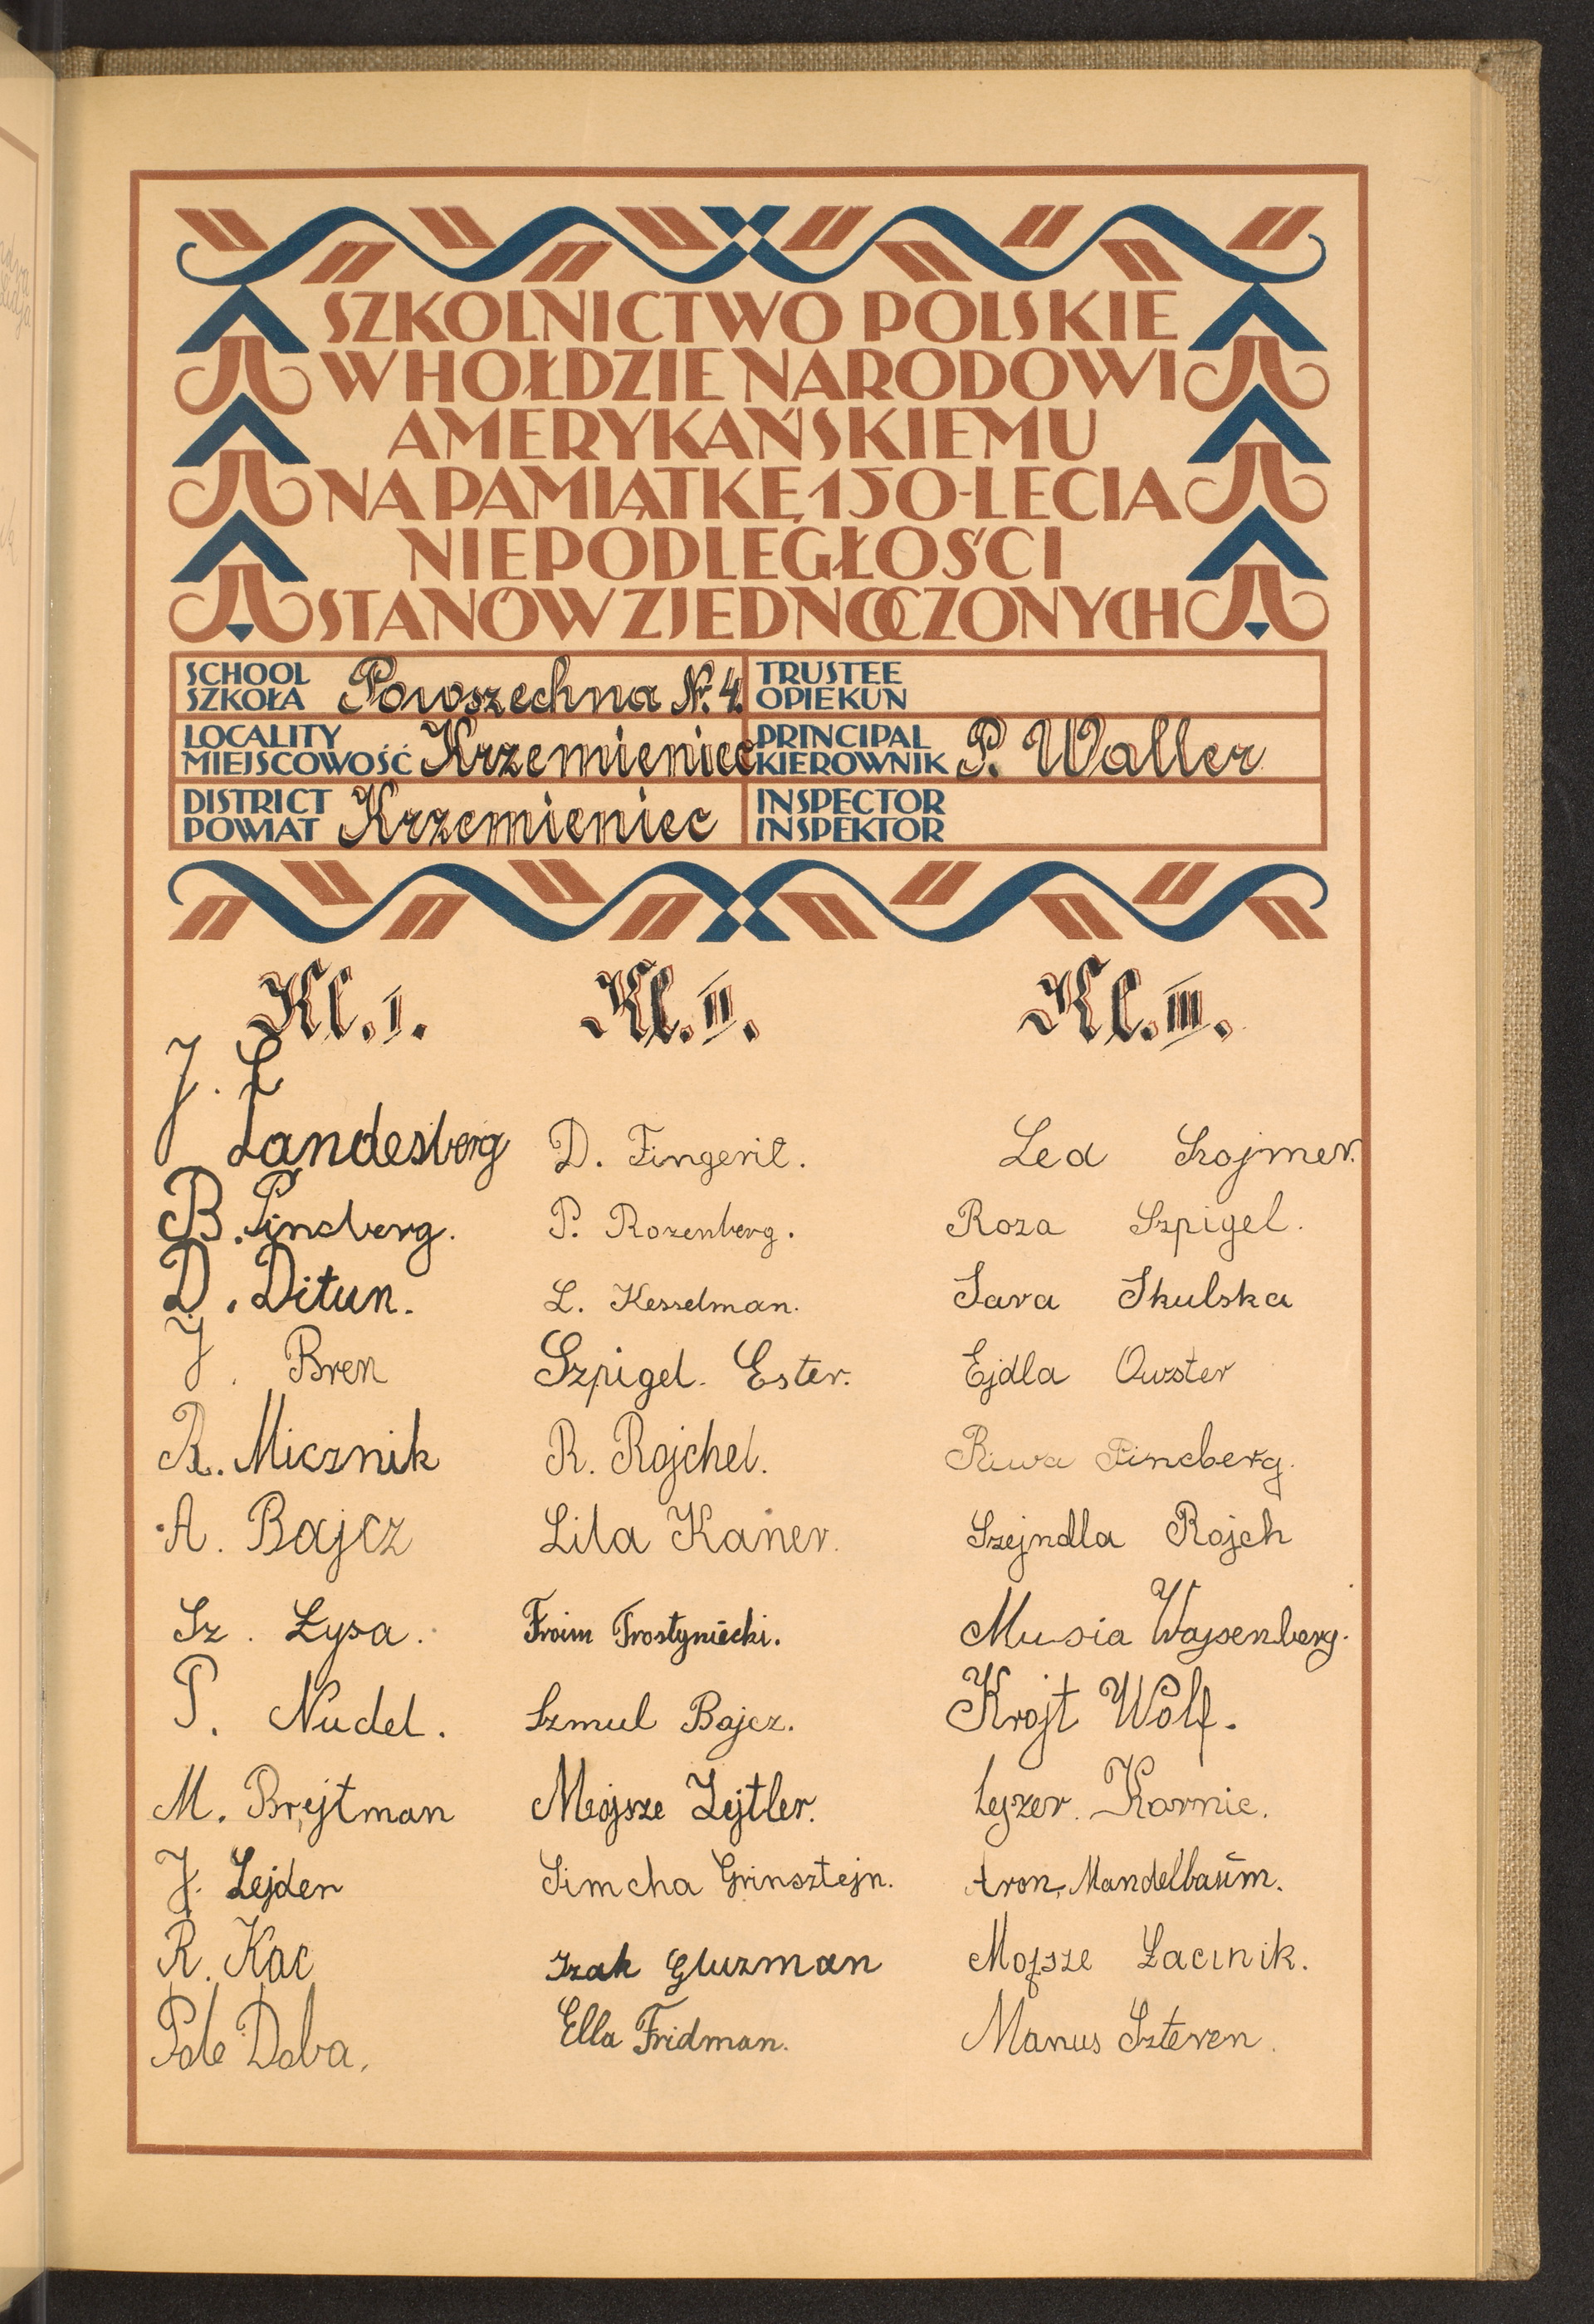 SZKOLNICTWO POLSKIE
W HOŁDZIE NARODOWI
AMERYKAŃSKIEMU
NA PAMIĄTKĘ 150-LECIA
NIEPODLEGŁOŚCI
STANÓW ZJEDNOCZONYCH
SCHOOL
SZKOŁA Powszechna Nr. 4.
TRUSTEE
OPIEKUN
LOCALITY
MIEJSCOWOŚĆ Krzemieniec
PRINCIPAL
KIEROWNIK P. Waller
DISTRICT
POWIAT Krzemieniec
INSPECTOR
INSPEKTOR
Kl. I.
J. L
Landesberg
B. Pincberg.
D. Ditun.
J. Bren
R. Micznik
A. Bajcz
Sz. Łysa.
P. Nudel.
M. Brejtman
J. Lejder
R. Kac
Doba.
Kl. II.
D. Fingerit.
P. Rozenberg.
L. Kesselman.
Szpigel. Ester.
R. Rojchel.
Lila Kaner.
Froim Trostyniecki.
Szmul Bajcz.
Mojsze Zejtler.
Simcha Grinsztejn.
Izak Gluzman
Ella Fridman.
Kl. III.
Lea Szojmer.
Roza Szpigel.
Sara Skulska
Ejdla Owster
Riwa Pincberg.
Szejndla Rojch
Musia Wajsenberg.
Krojt Wolf.
Lejzer Karnic.
Aron Mandelbaum.
Mojsze Łacinik.
Manus Szteren.